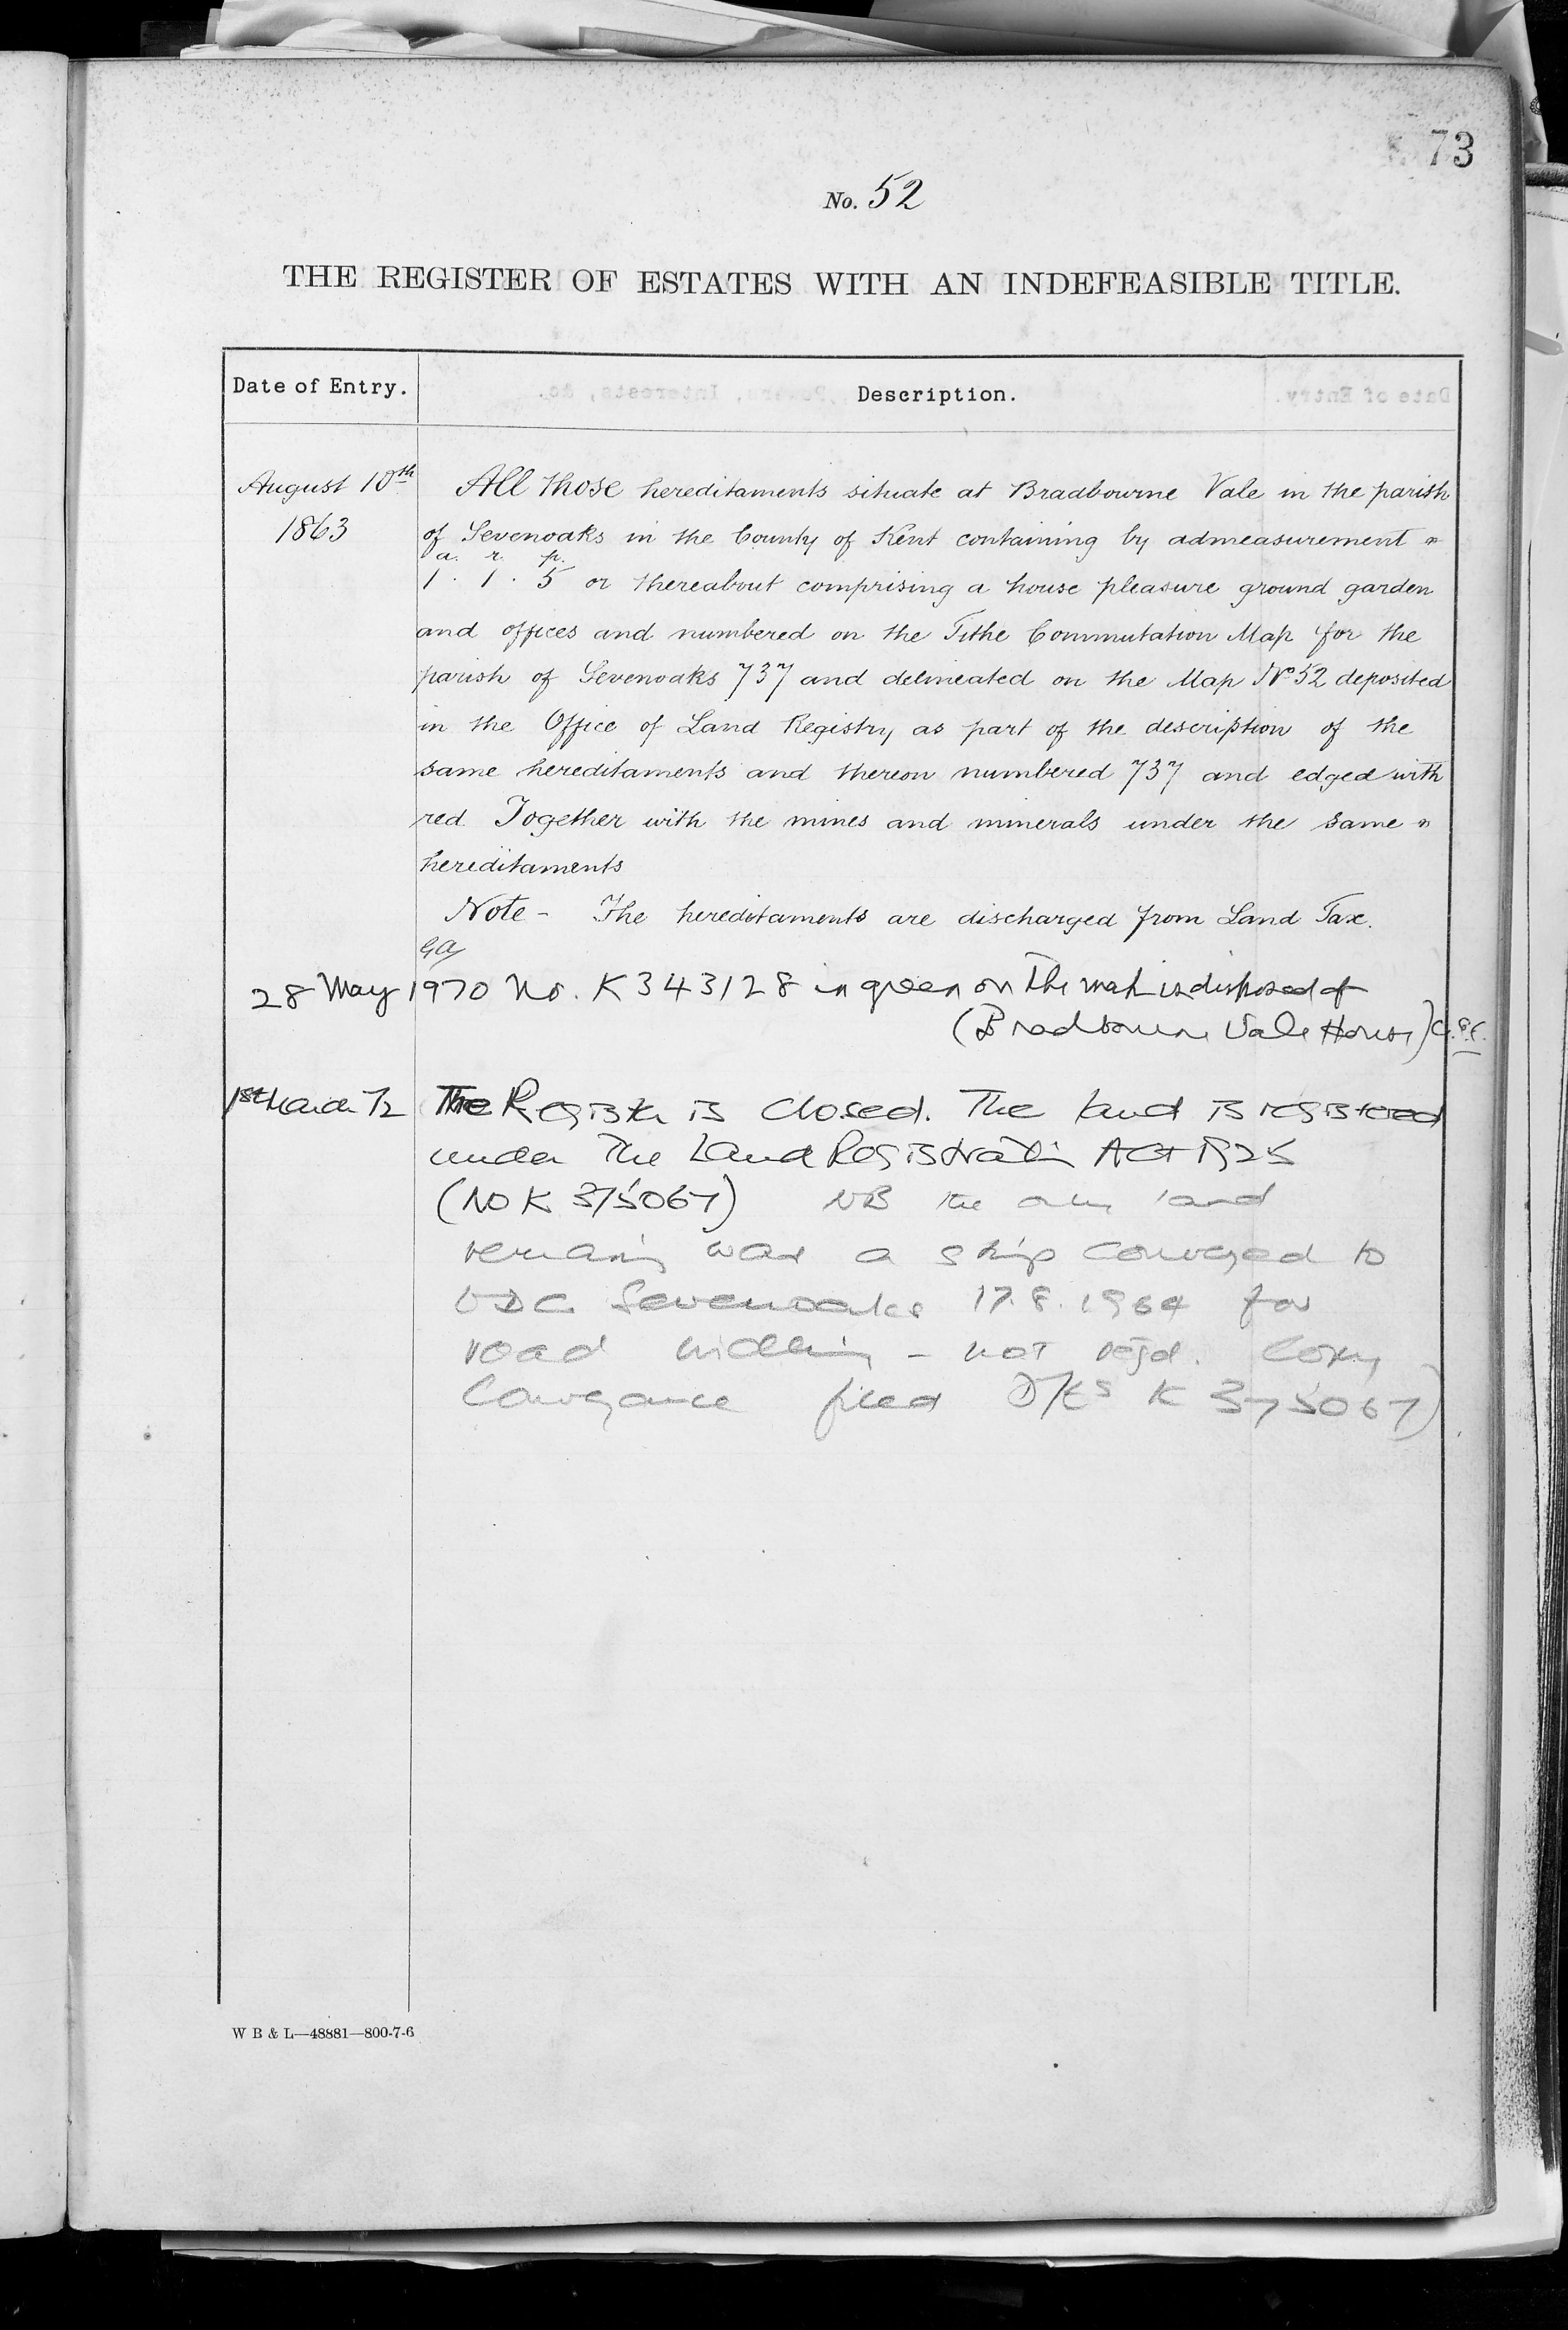 73
No. 52
THE REGISTER OF ESTATES WITH AN INDEFEASIBLE TITLE.
Date of Entry. Description.
August 10th All those hereditaments situate at Bradbourne Vale in the parish
1863 of Sevenoaks in the County of Kent containing by admeasurement
a. r. p.
1 . 1 . 5 or thereabout comprising a house pleasure ground garden
and offices and numbered on the Tithe Commutation Map for the
parish of Sevenoaks 737 and delineated on the Map No 52 deposited
in the Office of Land Registry as part of the description of the
same hereditaments and thereon numbered 737 and edged with
red. Together with the mines and minerals under the same
hereditaments
Note - The hereditaments are discharged from Land Tax.
28 May 1970 No. K 343128 in green on the map is disposed of
(Bradbourne Vale House)
1st March 72 The Register is closed. The land is registered
under the Land Registration Act 1925
(NO K 375067) NB the only land
remaining was a strip conveyed to
UDC Sevenoaks 17.8.1964 for
road widening - not regd. Copy
Conveyance filed K 375067)
W B & L—48881—800-7-6